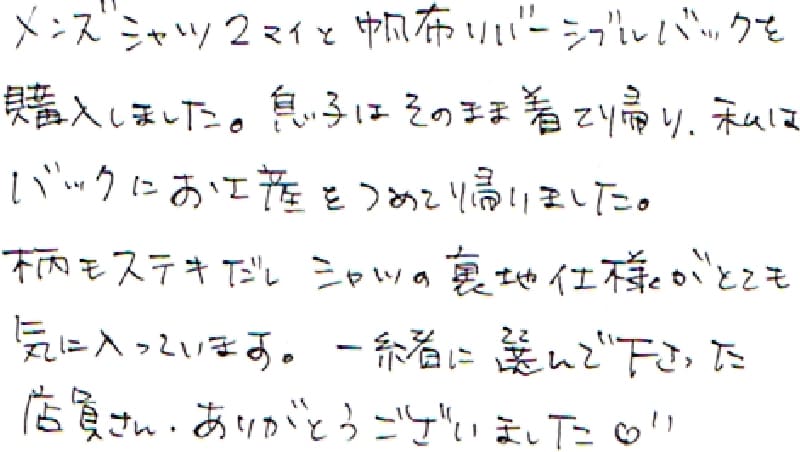 メンズシャツ2マイと帆布リバーシブルバックを
購入しました。息子はそのまま着て帰り、私は
バックにお土産をつめて帰りました。
柄もステキだし シャツの裏地仕様がとても
気に入っています。一緒に選んで下さった
店員さん、ありがとうございました♡"